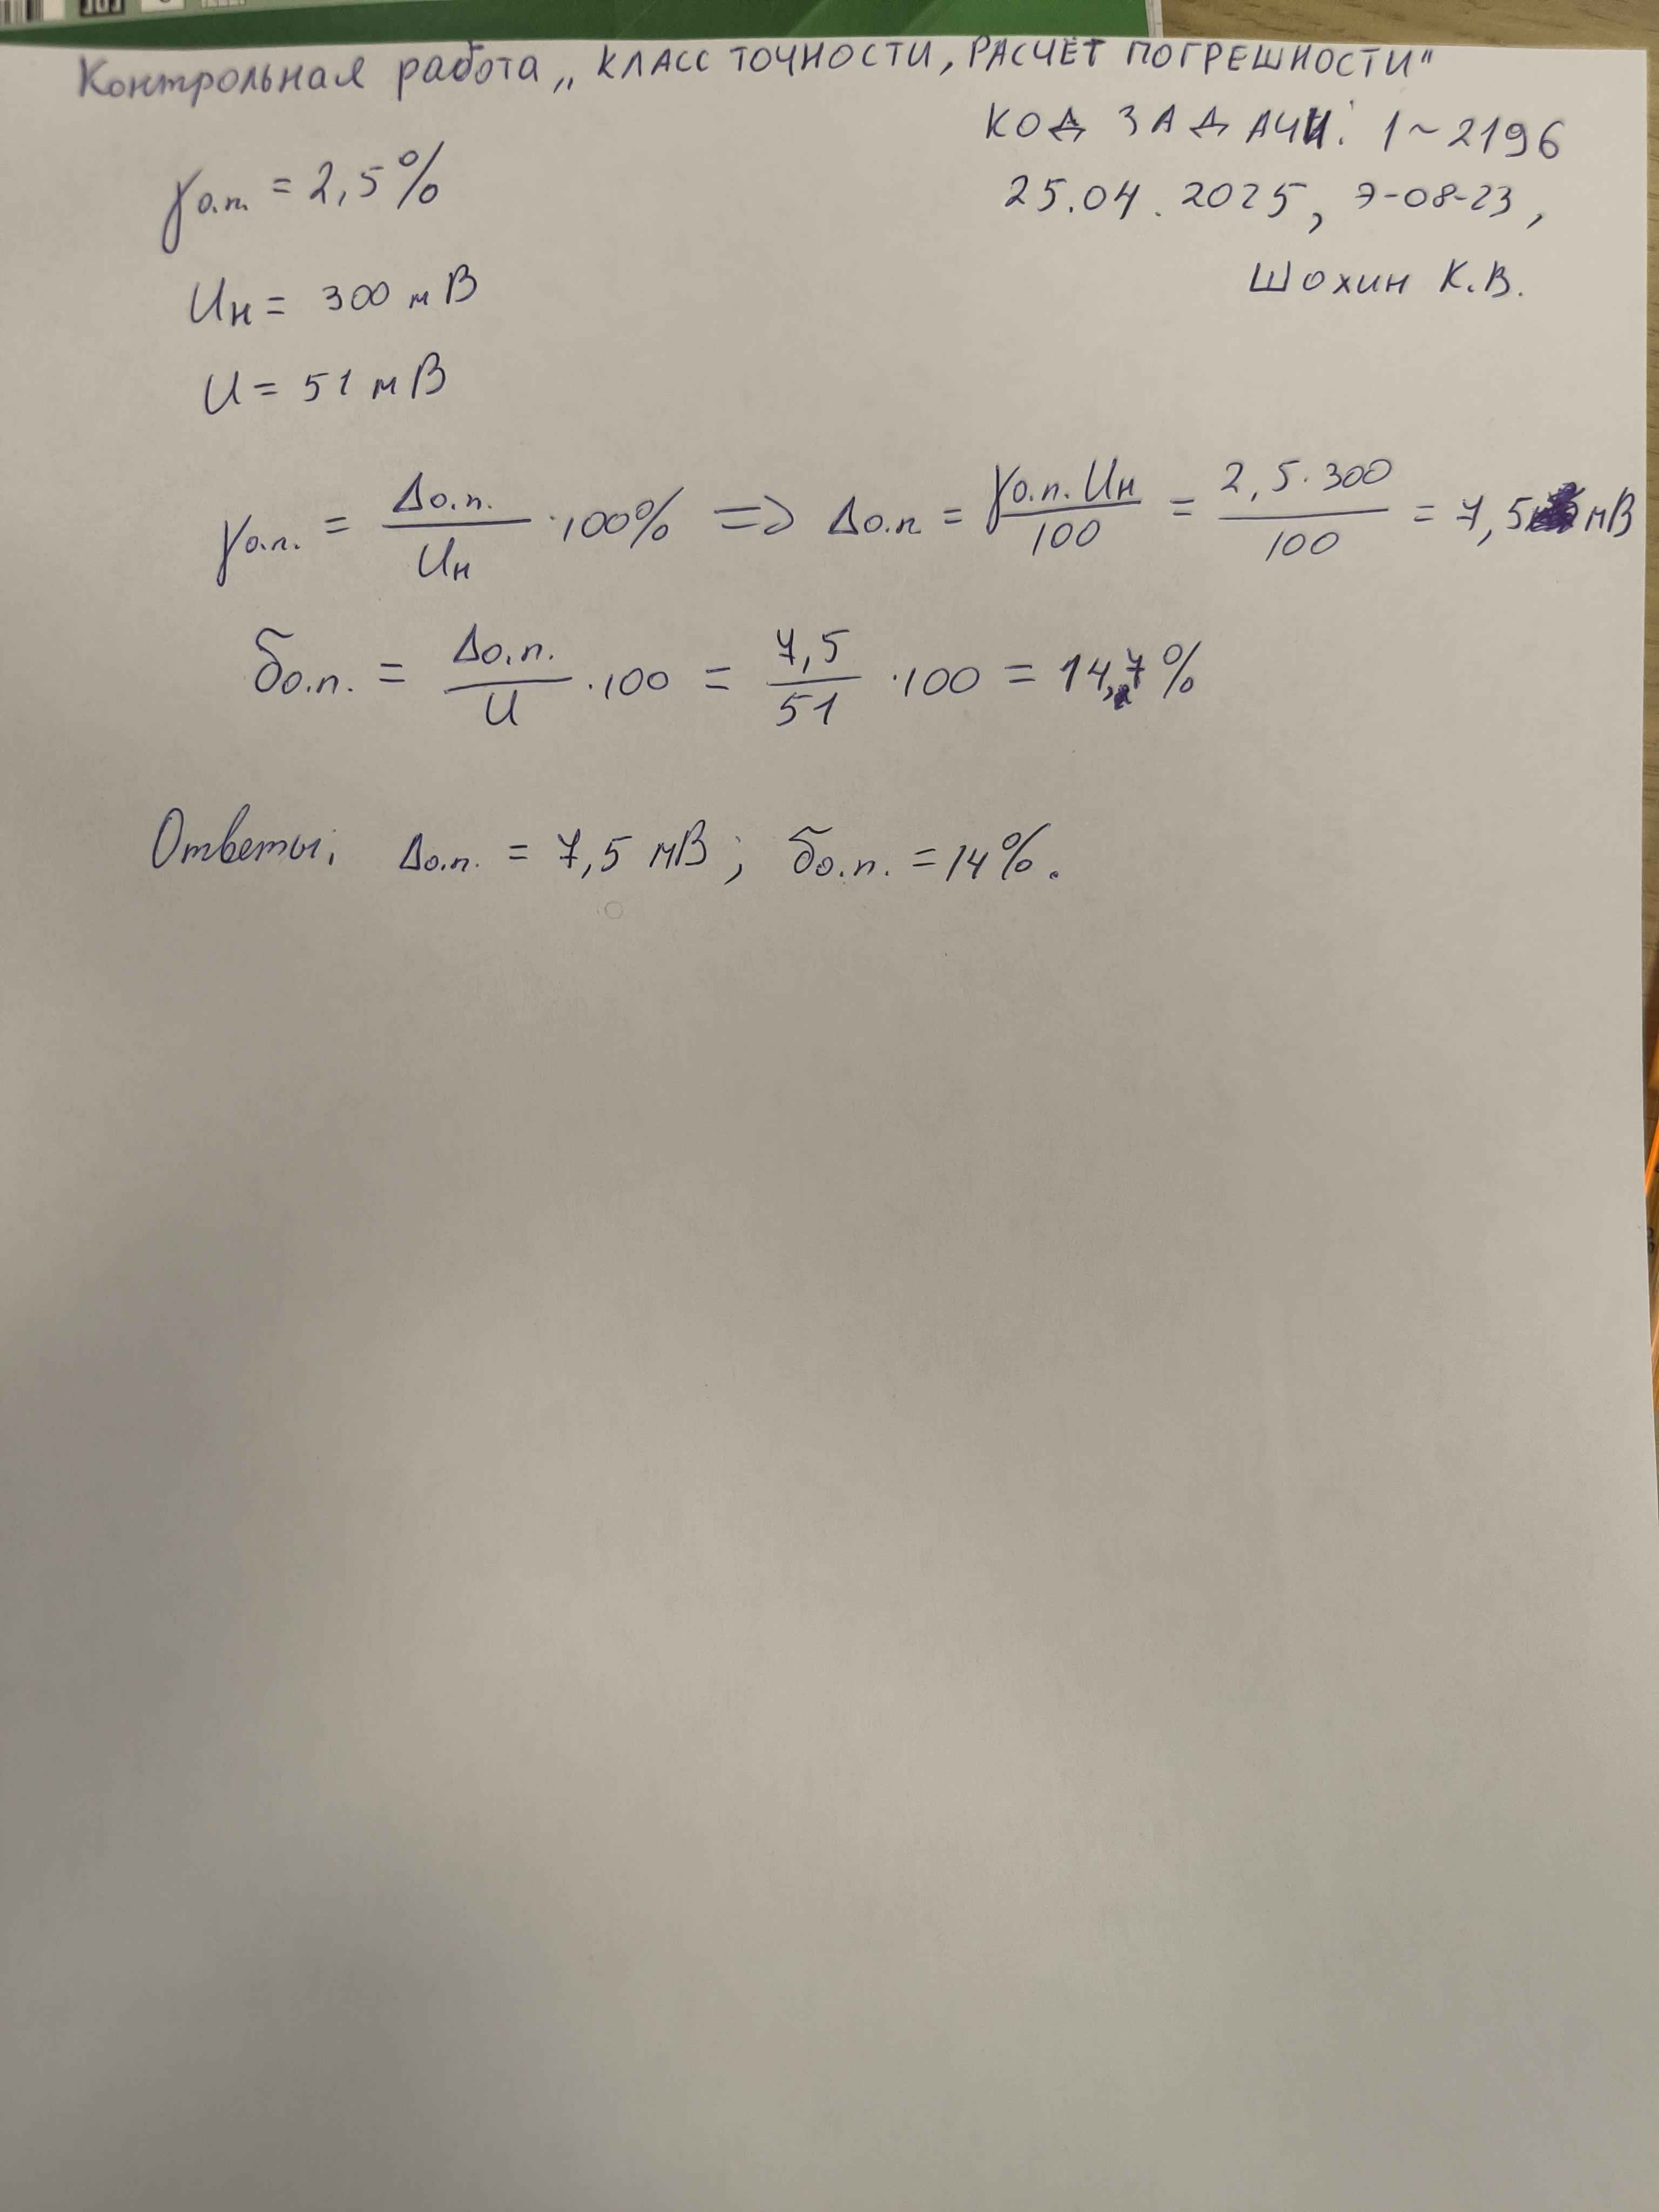 Контрольная работа „КЛАСС ТОЧНОСТИ, РАСЧЁТ ПОГРЕШНОСТИ"
КОД ЗАДАЧИ: 1~2196
25.04.2025, Э-08-23,
Шохин К.В.
γо.п. = 2,5%
Uн = 300 мВ
U = 51 мВ
γо.п. = Δо.п. / Uн · 100% => Δо.п = γо.п. Uн / 100 = 2,5·300 / 100 = 7,5 мВ
δо.п. = Δо.п. / U · 100 = 7,5 / 51 · 100 = 14,7%
Ответы: Δо.п. = 7,5 мВ; δо.п. = 14%.